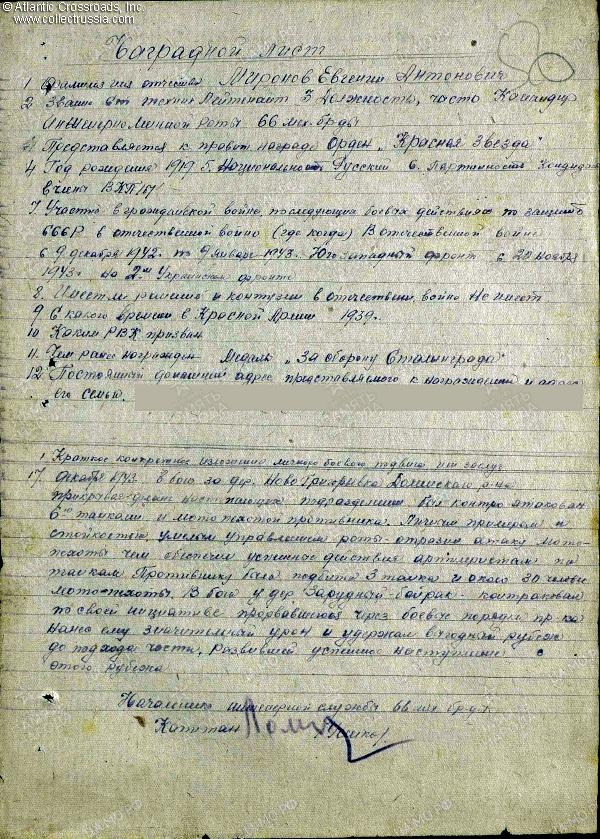 © Atlantic Crossroads, Inc.
www.collectrussia.com
Наградной лист
1. Фамилия имя отчество Миронов Евгений Антонович
2. Звание техник Лейтенант 3 Должность, часть Командир
Инженерно Минной роты 66 мех. бр-ды
Представляется к правит награде Орден „Красная Звезда"
4. Год рождения 1919 5. Национальность Русский 6. Партийность Кандидат
в члены ВКП/б/
7. Участие в гражданской войне, последующих боевых действиях по защите
СССР в отечественной войне (где когда) В отечественной войне
с 9 декабря 1942 г. по 9 января 1943 г. Юго западный фронт с 20 ноября
1943 г. на 2ой Украинском фронте
8. Имеет ли ранения и контузии в отечествен. войне Не имеет
9. С какого времени в Красной Армии 1939 г.
10 Каким РВК призван
11. Чем ранее награжден Медаль „За оборону Сталинграда"
12. Постоянный домашний адрес представляемого к награждению и адрес
его семьи.
1. Краткое конкретное изложение личного боевого подвига или заслуг
17. Декабря 1943 в бою за дер. Ново Григоревка р-на
прикрывая фланг наступающих подразделений был контратакован
6ю танками и мотопехотой противника. Личным примером и
стойкостью, умелым управлением роты - отразил атаку мото-
пехоты чем обеспечил успешные действия артиллеристам по
танкам. Противнику было подбито 3 танка и около 30 человек
мотопехоты. В бою у дер байрак - контратаковал
по своей инициативе прорвавшегося через боевые порядки пр-ка
нанес ему значительный урон и удержал выгодный рубеж
до подхода части, развившей успешное наступление с
этого рубежа
Начальник инженерной службы 66 мех бр-ды
Капитан